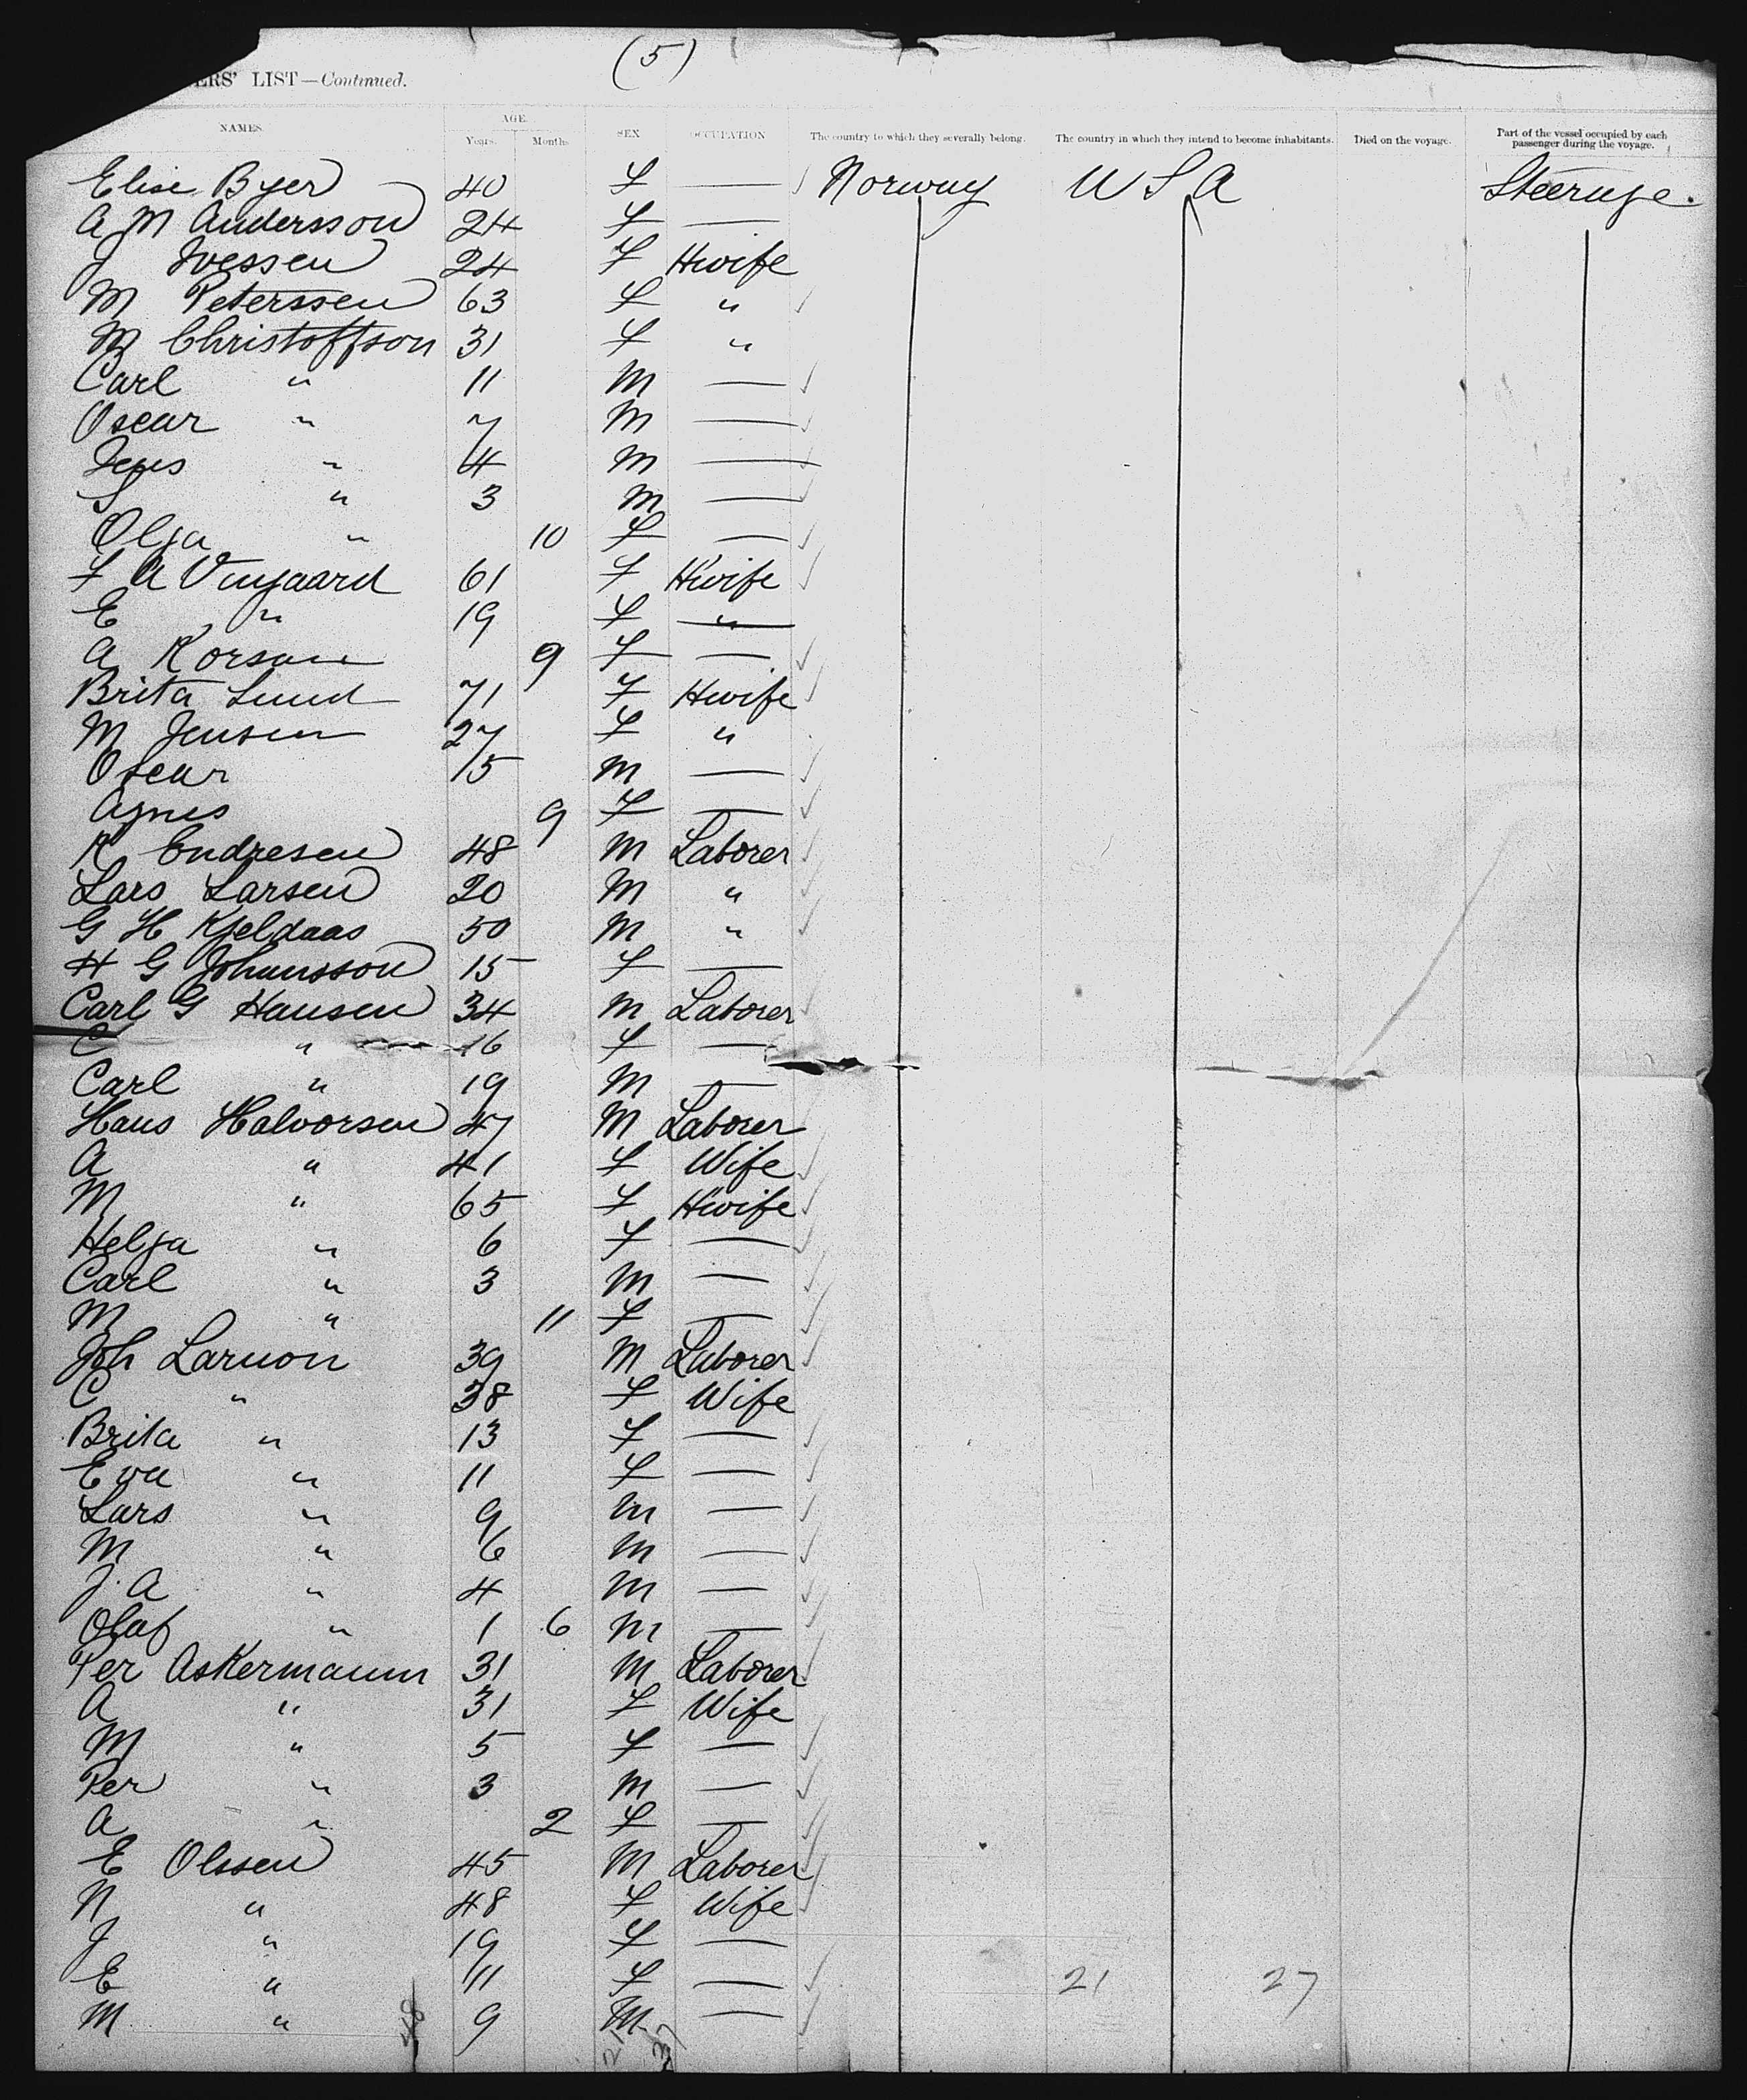 (5)
ERS' LIST—Continued.
NAMES. AGE. Years. Months. SEX OCCUPATION The country to which they severally belong. The country in which they intend to become inhabitants. Died on the voyage. Part of the vessel occupied by each passenger during the voyage.
Elise Byer 40 f — Norway U S A Steerage.
A M Andersson 24 f —
J Ivessen 24 f Hwife
M Peterssen 63 f "
M Christoffson 31 f "
Carl " 11 M —
Oscar " 7 M —
Jens " 4 M —
S " 3 M —
Olga " 10 f —
F A Vingaard 61 f Hwife
E " 19 f "
A Korsam 9 f —
Brita Lund 71 f Hwife
M Jensen 27 f "
Oscar 15 M —
Agnes 9 f —
K Endresen 48 M Laborer
Lars Larsen 20 M "
G H Kjeldaas 50 M "
H G Johansson 15 f —
Carl G Hansen 34 M Laborer
C " 16 f —
Carl " 19 M —
Hans Halvorsen 47 M Laborer
A " 41 f Wife
M " 65 f Hwife
Helga " 6 f —
Carl " 3 M —
M " 11 f —
Joh Larson 39 M Laborer
C " 38 f Wife
Brita " 13 f —
Eva " 11 f —
Lars " 9 M —
M " 6 M —
J. A " 4 M —
Olaf " 1 6 M —
Per Askermann 31 M Laborer
A " 31 f Wife
M " 5 f —
Per " 3 M —
A " 2 f —
E Olssen 45 M Laborer
N " 48 f Wife
J " 19 f —
E " 11 f — 21 27
M " 9 M —
48 21 27